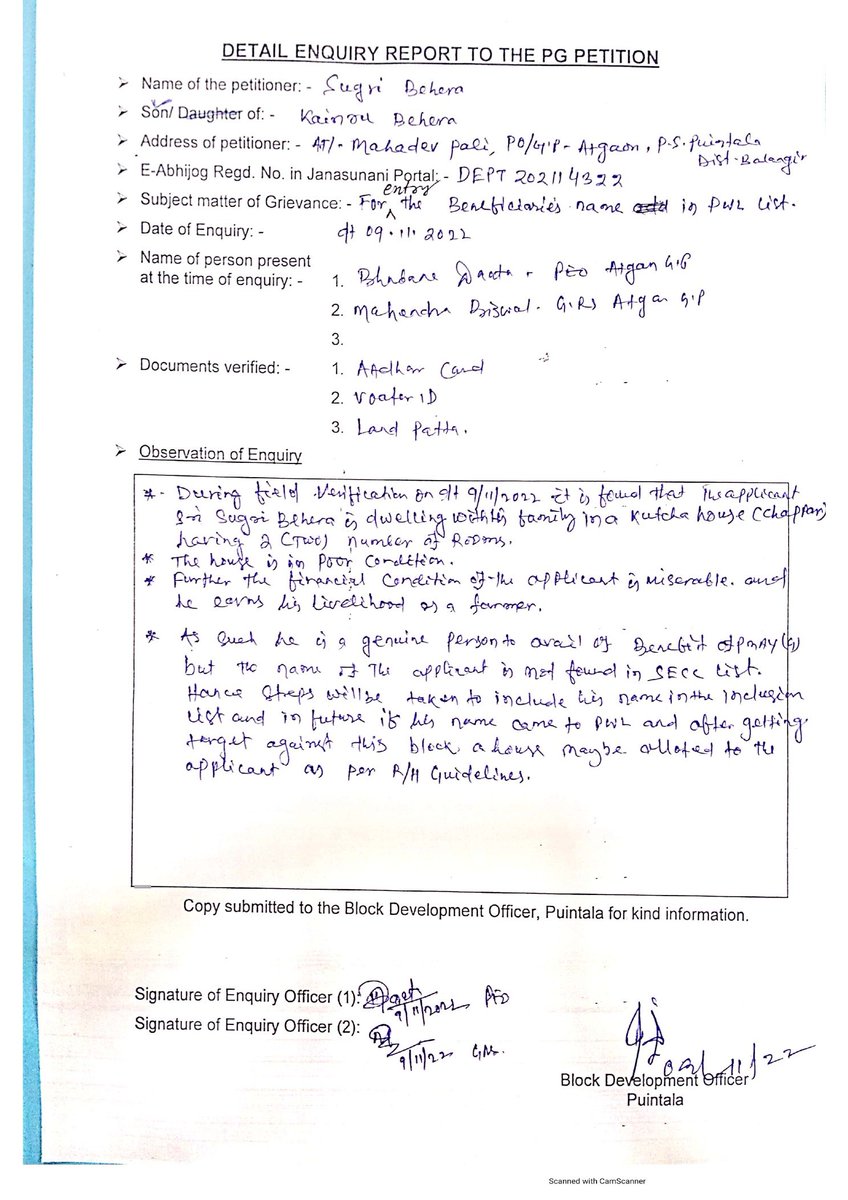 DETAIL ENQUIRY REPORT TO THE PG PETITION
➤ Name of the petitioner: - Sugri Behera
➤ Son/ Daughter of: - Kainou Behera
➤ Address of petitioner: - AT/- Mahadev Pali, PO/G.P- Atgaon, P.S. Puintala
Dist-Balangir
➤ E-Abhijog Regd. No. in Janasunani Portal: - DEPT 202114322
entry
➤ Subject matter of Grievance: - For the Beneficiaries name in PWL List.
➤ Date of Enquiry: - dt 09.11.2022
➤ Name of person present
at the time of enquiry: - 1. PEO Atgan G.P
2. Mahendra Biswal. G.R.S Atgan G.P
3.
➤ Documents verified: - 1. AAdhar Card
2. Voater ID
3. Land Patta.
➤ Observation of Enquiry
*- During field Verification on dt 9/11/2022 it is found that The applicant
Sri Sugri Behera is dwelling with his family in a Kutcha house (chappar)
having 2 (Two) number of Rooms.
* The house is in Poor Condition.
* Further the financial Condition of the applicant is miserable. and
he earns his livelihood as a farmer.
* As such he is a genuine person to avail of Benefit of PMAY(G)
but the name of the applicant is not found in SECC List.
Hance Steps will be taken to include his name in the inclusion
List and in future if his name came to PWL and after getting
target against this block a house maybe alloted to the
applicant as per R/H Guidelines.
Copy submitted to the Block Development Officer, Puintala for kind information.
Signature of Enquiry Officer (1): 9/11/2022 PEO
Signature of Enquiry Officer (2):
9/11/22 GRS.
09/11/22
Block Development Officer
Puintala
Scanned with CamScanner